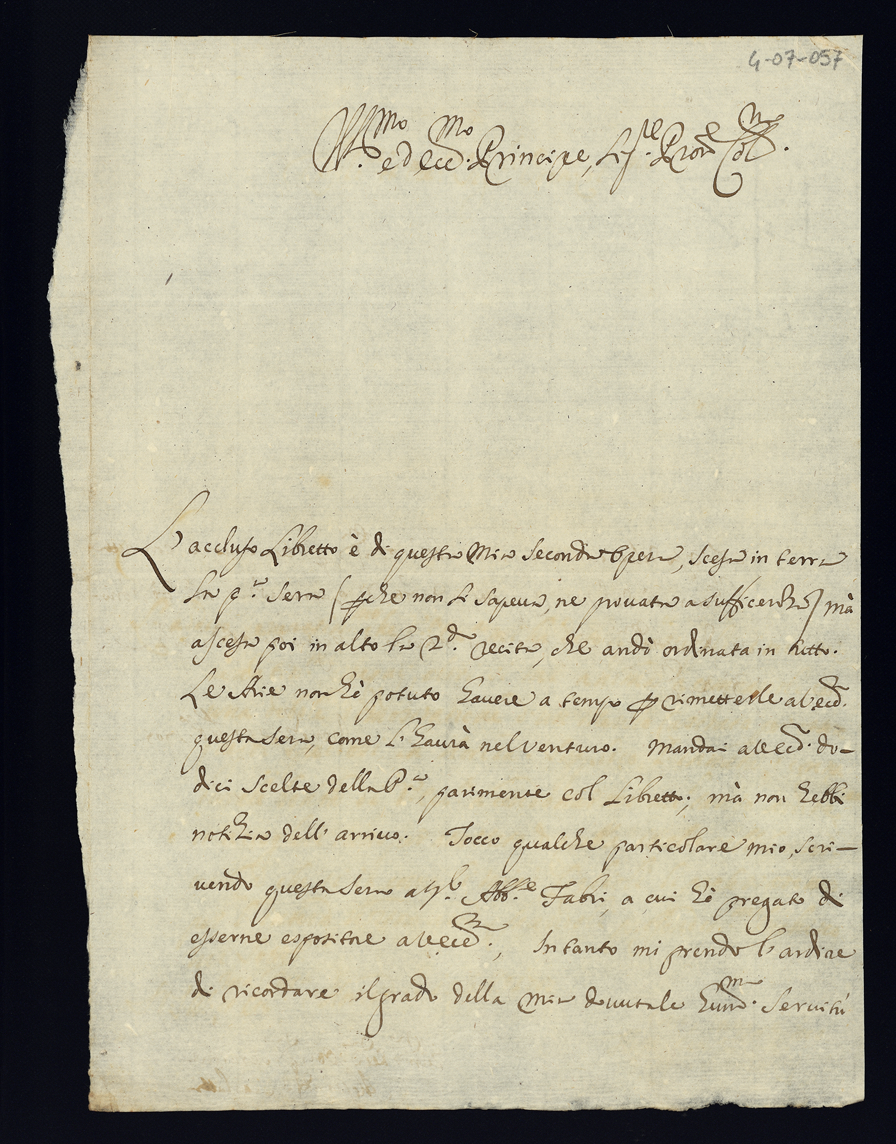 4-07-057
Ill.mo ed Ecc.mo Principe, Sig.re Pron.e Col.mo
L'accluso Libretto è di questa Mia Seconda Opera, scesa in terra
la p.a Sera (perche non si sapeva, ne provata a sufficenza) mà
ascesa poi in alto la 2.da recita, che andò ordinata in tutto.
Le Arie non hò potuto havere a tempo per rimetterle a V. Ecc.a
questa Sera, come l'haurà nel venturo. Mandai a V. Ecc.a do-
dici Scelte della P.a, parimente col Libretto; mà non hebbi
notizia dell'arrivo. Tocco qualche particolare mio, scri-
vendo questa Sera al Sig.r Abb.e Fabri, a cui hò pregato di
esserne espositore a V. Ecc.a, Intanto mi prendo l'ardire
di ricordare il grado della mia dovutale hum.ma Servitù